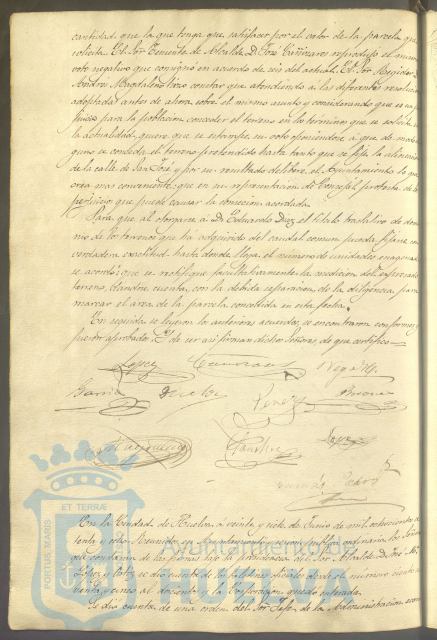 cantidad que la que tenga que satisfacer por el valor de la parcela que
solicita. El Sor. Teniente de Alcalde D. José Cañizares reprodujo el mismo
voto negativo que consignó en acuerdo de seis del actual. El Sor. Regidor
Andrés Magdaleno hizo constar que atendiendo a las diferentes
adoptadas antes de ahora sobre el mismo asunto y considerando que es
juicio para la población conceder el terreno en los términos que se solicita
la actualidad, quiere que se estampe su voto oponiéndose a que de modo
guno se conceda el terreno pretendido hasta tanto que se fije la alineación
de la calle de San José y por su resultado delibere el Ayuntamiento lo que
crea mas conveniente, que en su representación de Concejal protesta de
perjuicio que puede causar la concesión acordada.
Para que al otorgarse a D. Eduardo Diaz el título traslativo de domi
nio de los terrenos que ha adquirido del caudal comun pueda fijarse con
verdadera exactitud hasta donde llega el número de unidades enagenadas
se acordó: que se rectifique facultativamente la medicion del expresado
terreno, dándose cuenta, con la debida separacion de la diligencia para
marcar el area de la parcela concedida en esta fecha.
En seguida se leyeron los anteriores acuerdos, se encontraron conformes y
fueron aprobados. De ser asi firman dichos Señores, de que certifico
Lopez
Vega
Garcia
Perez
Sanchez
Lopez
En la Ciudad de Huelva á veinte y siete de Junio de mil ochocientos
tenta y ocho. Reunido su Ayuntamiento en sesion publica ordinaria los Señores
que constarán de las firmas bajo la presidencia del Sor. Alcalde D. José M.
Lopez y Ortiz se dió cuenta de los boletines oficiales desde el número ciento
venta y cinco al doscientos y la Corporacion quedó enterada.
Se dió cuenta de una orden del Sor. Jefe de la Administracion
ET TERRÆ
PORTUS MARIS
Ayuntamiento de
HUELVA